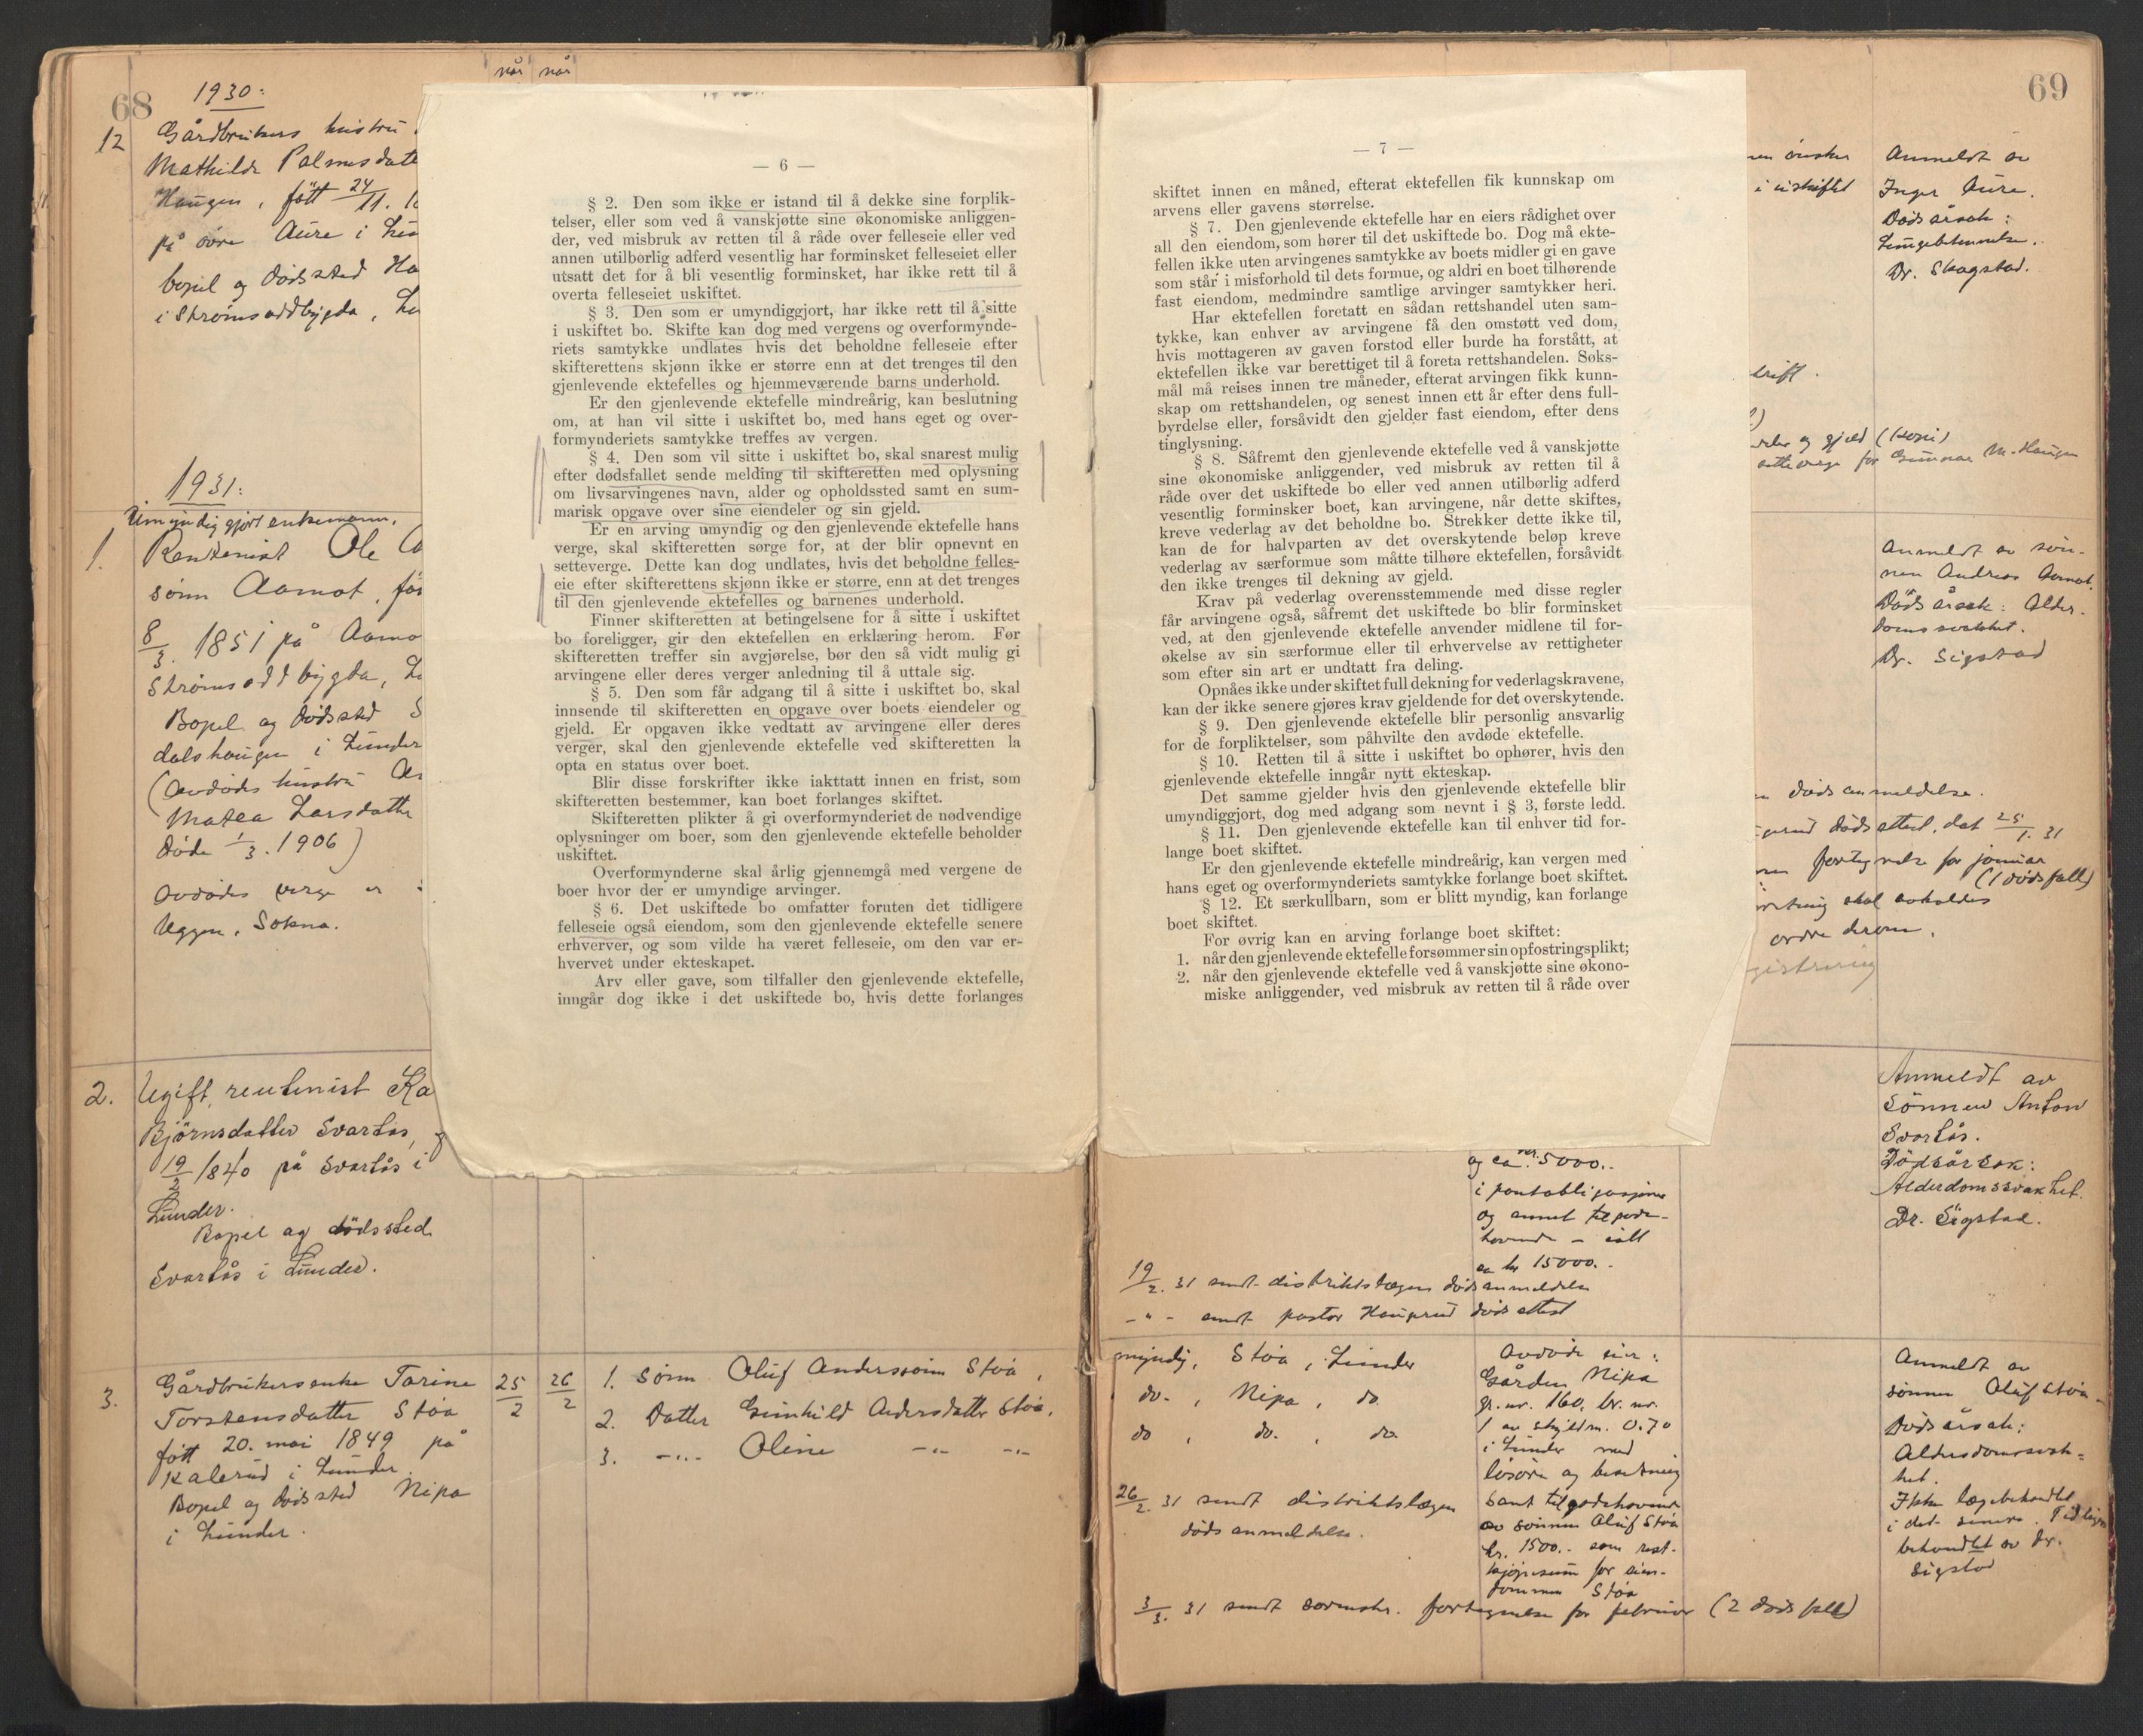 når når
68
1930:
12 Gårdbrukers hustru
Mathilde Palmesdatt
Haugen, født 24/11. 1
på øvre Aure i Lun
bopel og dødssted Ha
i Strømsoddbygda, Lu
1931:
Umyndiggjort enkemann,
1. Rentenist Ole
sønn Aamot, fø
8/3. 1851 på Aamo
Strømsoddbygda, L
Bopel og dødssted S
dalshaugen i Lunder
(Avdødes hustru
Matea Larsdatter
døde 1/3. 1906)
Avdødes verge er
Uggen, Sokna.
2. Ugift, rentenist Ka
Bjørnsdatter Svartås,
19/2 1840 på Svartås i
Lunder.
Bopel og dødssted
Svartås i Lunder.
3. Gårdbrukersenke Torine 25/2 26/2
Torstensdatter Støa
født 20. mai 1849 på
Kalerud i Lunder.
Bopel og dødssted Nipa
i Lunder.
1. Sønn Oluf Anderssønn Støa,
2. Datter Gunhild Andersdatter Støa,
3. -"- Oline -"- -"-
— 6 —
§ 2. Den som ikke er istand til å dekke sine forplik-
telser, eller som ved å vanskjøtte sine økonomiske anliggen-
der, ved misbruk av retten til å råde over felleseie eller ved
annen utilbørlig adferd vesentlig har forminsket felleseiet eller
utsatt det for å bli vesentlig forminsket, har ikke rett til å
overta felleseiet uskiftet.
§ 3. Den som er umyndiggjort, har ikke rett til å sitte
i uskiftet bo. Skifte kan dog med vergens og overformynde-
riets samtykke undlates hvis det beholdne felleseie efter
skifterettens skjønn ikke er større enn at det trenges til den
gjenlevende ektefelles og hjemmeværende barns underhold.
Er den gjenlevende ektefelle mindreårig, kan beslutning
om, at han vil sitte i uskiftet bo, med hans eget og over-
formynderiets samtykke treffes av vergen.
§ 4. Den som vil sitte i uskiftet bo, skal snarest mulig
efter dødsfallet sende melding til skifteretten med oplysning
om livsarvingenes navn, alder og opholdssted samt en sum-
marisk opgave over sine eiendeler og sin gjeld.
Er en arving umyndig og den gjenlevende ektefelle hans
verge, skal skifteretten sørge for, at der blir opnevnt en
setteverge. Dette kan dog undlates, hvis det beholdne felles-
eie efter skifterettens skjønn ikke er større, enn at det trenges
til den gjenlevende ektefelles og barnenes underhold.
Finner skifteretten at betingelsene for å sitte i uskiftet
bo foreligger, gir den ektefellen en erklæring herom. Før
skifteretten treffer sin avgjørelse, bør den så vidt mulig gi
arvingene eller deres verger anledning til å uttale sig.
§ 5. Den som får adgang til å sitte i uskiftet bo, skal
innsende til skifteretten en opgave over boets eiendeler og
gjeld. Er opgaven ikke vedtatt av arvingene eller deres
verger, skal den gjenlevende ektefelle ved skifteretten la
opta en status over boet.
Blir disse forskrifter ikke iakttatt innen en frist, som
skifteretten bestemmer, kan boet forlanges skiftet.
Skifteretten plikter å gi overformynderiet de nødvendige
oplysninger om boer, som den gjenlevende ektefelle beholder
uskiftet.
Overformynderne skal årlig gjennemgå med vergene de
boer hvor der er umyndige arvinger.
§ 6. Det uskiftede bo omfatter foruten det tidligere
felleseie også eiendom, som den gjenlevende ektefelle senere
erhverver, og som vilde ha været felleseie, om den var er-
hvervet under ekteskapet.
Arv eller gave, som tilfaller den gjenlevende ektefelle,
inngår dog ikke i det uskiftede bo, hvis dette forlanges
— 7 —
skiftet innen en måned, efterat ektefellen fik kunnskap om
arvens eller gavens størrelse.
§ 7. Den gjenlevende ektefelle har en eiers rådighet over
all den eiendom, som hører til det uskiftede bo. Dog må ekte-
fellen ikke uten arvingenes samtykke av boets midler gi en gave
som står i misforhold til dets formue, og aldri en boet tilhørende
fast eiendom, medmindre samtlige arvinger samtykker heri.
Har ektefellen foretatt en sådan rettshandel uten sam-
tykke, kan enhver av arvingene få den omstøtt ved dom,
hvis mottageren av gaven forstod eller burde ha forstått, at
ektefellen ikke var berettiget til å foreta rettshandelen. Søks-
mål må reises innen tre måneder, efterat arvingen fikk kunn-
skap om rettshandelen, og senest innen ett år efter dens full-
byrdelse eller, forsåvidt den gjelder fast eiendom, efter dens
tinglysning.
§ 8. Såfremt den gjenlevende ektefelle ved å vanskjøtte
sine økonomiske anliggender, ved misbruk av retten til å
råde over det uskiftede bo eller ved annen utilbørlig adferd
vesentlig forminsker boet, kan arvingene, når dette skiftes,
kreve vederlag av det beholdne bo. Strekker dette ikke til,
kan de for halvparten av det overskytende beløp kreve
vederlag av særformue som måtte tilhøre ektefellen, forsåvidt
den ikke trenges til dekning av gjeld.
Krav på vederlag overensstemmende med disse regler
får arvingene også, såfremt det uskiftede bo blir forminsket
ved, at den gjenlevende ektefelle anvender midlene til for-
økelse av sin særformue eller til erhvervelse av rettigheter
som efter sin art er undtatt fra deling.
Opnåes ikke under skiftet full dekning for vederlagskravene,
kan der ikke senere gjøres krav gjeldende for det overskytende.
§ 9. Den gjenlevende ektefelle blir personlig ansvarlig
for de forpliktelser, som påhvilte den avdøde ektefelle.
§ 10. Retten til å sitte i uskiftet bo ophører, hvis den
gjenlevende ektefelle inngår nytt ekteskap.
Det samme gjelder hvis den gjenlevende ektefelle blir
umyndiggjort, dog med adgang som nevnt i § 3, første ledd.
§ 11. Den gjenlevende ektefelle kan til enhver tid for-
lange boet skiftet.
Er den gjenlevende ektefelle mindreårig, kan vergen med
hans eget og overformynderiets samtykke forlange boet skiftet.
§ 12. Et særkullbarn, som er blitt myndig, kan forlange
boet skiftet.
For øvrig kan en arving forlange boet skiftet:
1. når den gjenlevende ektefelle forsømmer sin opfostringsplikt;
2. når den gjenlevende ektefelle ved å vanskjøtte sine økono-
miske anliggender, ved misbruk av retten til å råde over
69
ønsker
i uskiftet
og gjeld (kopi)
setteverge for Gunnar M. Haugen
dødsanmeldelse.
dødsattest, dat 25/1. 31
fortegnelse for januar
(1 dødsfall)
skal avholdes
ordre derom.
Anmeldt av
Inger Aure.
Dødsårsak:
Lungebetennelse.
Dr. Skagstad.
Anmeldt av søn-
nen Andreas Aamot.
Dødsårsak: Alder-
domssvakhet.
Dr. Sigstad
Anmeldt av
Sönnen Anton
Svartås.
Dödsårsak:
Alderdomssvakhet.
Dr. Sigstad.
og ca kr. 5000.-
i pantobligasjoner
og annet tilgode-
havende - ialt
ca kr 15000.-
19/2. 31 sendt distriktslægen dødsanmeldelse
-"- sendt pastor Haugerud dødsattest
myndig, Støa, Lunder
do., Nipa, do.
do, do., do.
Avdøde eier:
Gården Nipa
gr. nr. 160, br. nr.
1 av skyldm. 0.70
i Lunder med
løsøre og besetning
samt tilgodehavende
av sønnen Oluf Støa
kr. 1500.- som rest-
kjøpesum for eien-
dommen Støa
26/2. 31 sendt distriktslægen
dødsanmeldelse.
3/3. 31 sendt sorenskr. fortegnelse for februar (2 dødsfall)
Anmeldt av
sønnen Oluf Støa
Dødsårsak:
Alderdomssvak-
het.
Ikke lægebehandlet
i det senere. Tidligere
behandlet av dr.
Sigstad